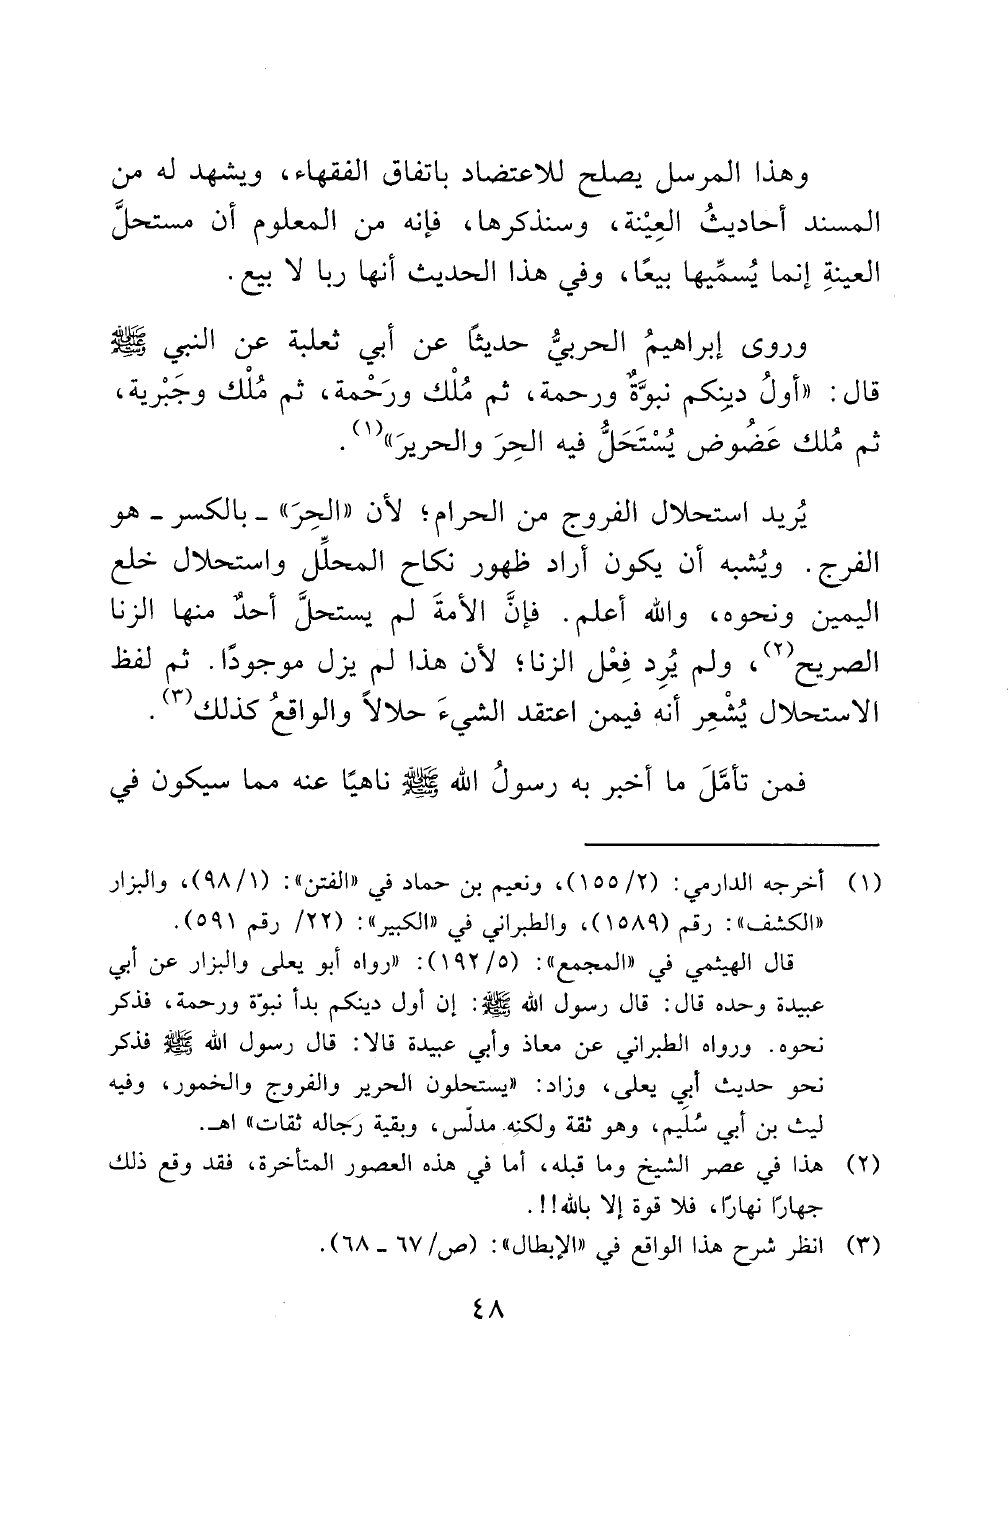 وهذا المرسل يصلح للاعتضاد باتفاق الفقهاء، ويشهد له من
المسند أحاديثُ العِيْنة، وسنذكرها، فإنه من المعلوم أن مستحلَّ
العينةِ إنما يُسمِّيها بيعًا، وفي هذا الحديث أنها ربا لا بيع.
وروى إبراهيمُ الحربيُّ حديثًا عن أبي ثعلبة عن النبي ﷺ
قال: «أولُ دينِكم نبوَّةٌ ورحمة، ثم مُلْك ورَحْمة، ثم مُلْك وجَبْرية،
ثم مُلك عَضُوض يُسْتَحَلُّ فيه الحِرَ والحريرَ»(١).
يُريد استحلال الفروج من الحرام؛ لأن «الحِرَ» ـ بالكسر ـ هو
الفرج. ويُشبه أن يكون أراد ظهور نكاح المحلِّل واستحلال خلع
اليمين ونحوه، والله أعلم. فإنَّ الأمةَ لم يستحلَّ أحدٌ منها الزنا
الصريح(٢)، ولم يُرِد فِعْل الزنا؛ لأن هذا لم يزل موجودًا. ثم لفظ
الاستحلال يُشْعِر أنه فيمن اعتقد الشيءَ حلالاً والواقعُ كذلك(٣).
فمن تأمَّلَ ما أخبر به رسولُ الله ﷺ ناهيًا عنه مما سيكون في
(١) أخرجه الدارمي: (٢/ ١٥٥)، ونعيم بن حماد في «الفتن»: (١/ ٩٨)، والبزار
«الكشف»: رقم (١٥٨٩)، والطبراني في «الكبير»: (٢٢/ رقم ٥٩١).
قال الهيثمي في «المجمع»: (٥/ ١٩٢): «رواه أبو يعلى والبزار عن أبي
عبيدة وحده قال: قال رسول الله ﷺ: إن أول دينكم بدأ نبوّة ورحمة، فذكر
نحوه. ورواه الطبراني عن معاذ وأبي عبيدة قالا: قال رسول الله ﷺ فذكر
نحو حديث أبي يعلى، وزاد: «يستحلون الحرير والفروج والخمور، وفيه
ليث بن أبي سُلَيم، وهو ثقة ولكنه مدلّس، وبقية رجاله ثقات» اهـ.
(٢) هذا في عصر الشيخ وما قبله، أما في هذه العصور المتأخرة، فقد وقع ذلك
جهارًا نهارًا، فلا قوة إلا بالله!!.
(٣) انظر شرح هذا الواقع في «الإبطال»: (ص/ ٦٧ ـ ٦٨).
٤٨